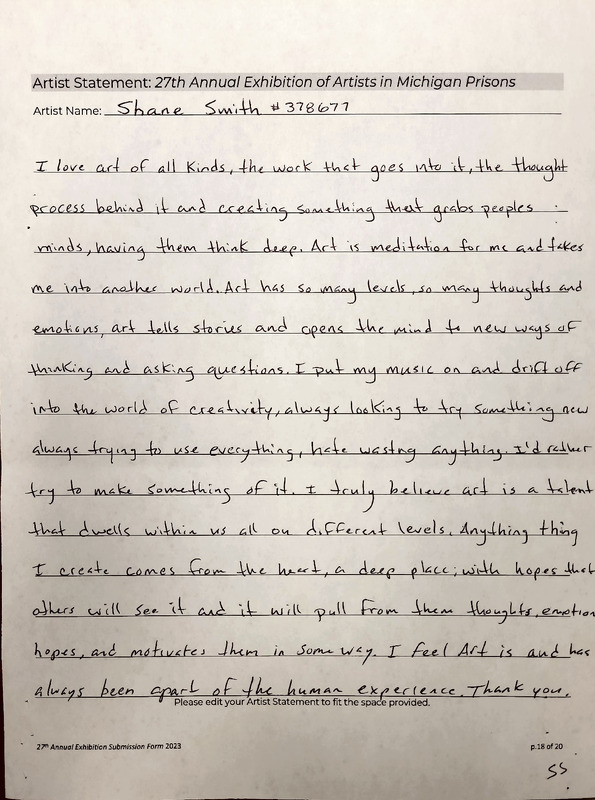 Artist Statement: 27th Annual Exhibition of Artists in Michigan Prisons
Artist Name: Shane Smith #378677
I love art of all kinds, the work that goes into it, the thought
process behind it and creating something that grabs peoples
minds, having them think deep. Art is meditation for me and takes
me into another world. Art has so many levels, so many thoughts and
emotions, art tells stories and opens the mind to new ways of
thinking and asking questions. I put my music on and drift off
into the world of creativity, always looking to try something new
always trying to use everything, hate wastng anything. I'd rather
try to make something of it. I truly believe art is a talent
that dwells within us all on different levels. Anything thing
I create comes from the heart, a deep place; with hopes that
others will see it and it will pull from them thoughts, emotion
hopes, and motivates them in some way. I feel Art is and has
always been apart of the human experience. Thank you.
Please edit your Artist Statement to fit the space provided.
27th Annual Exhibition Submission Form 2023
p.18 of 20
SS